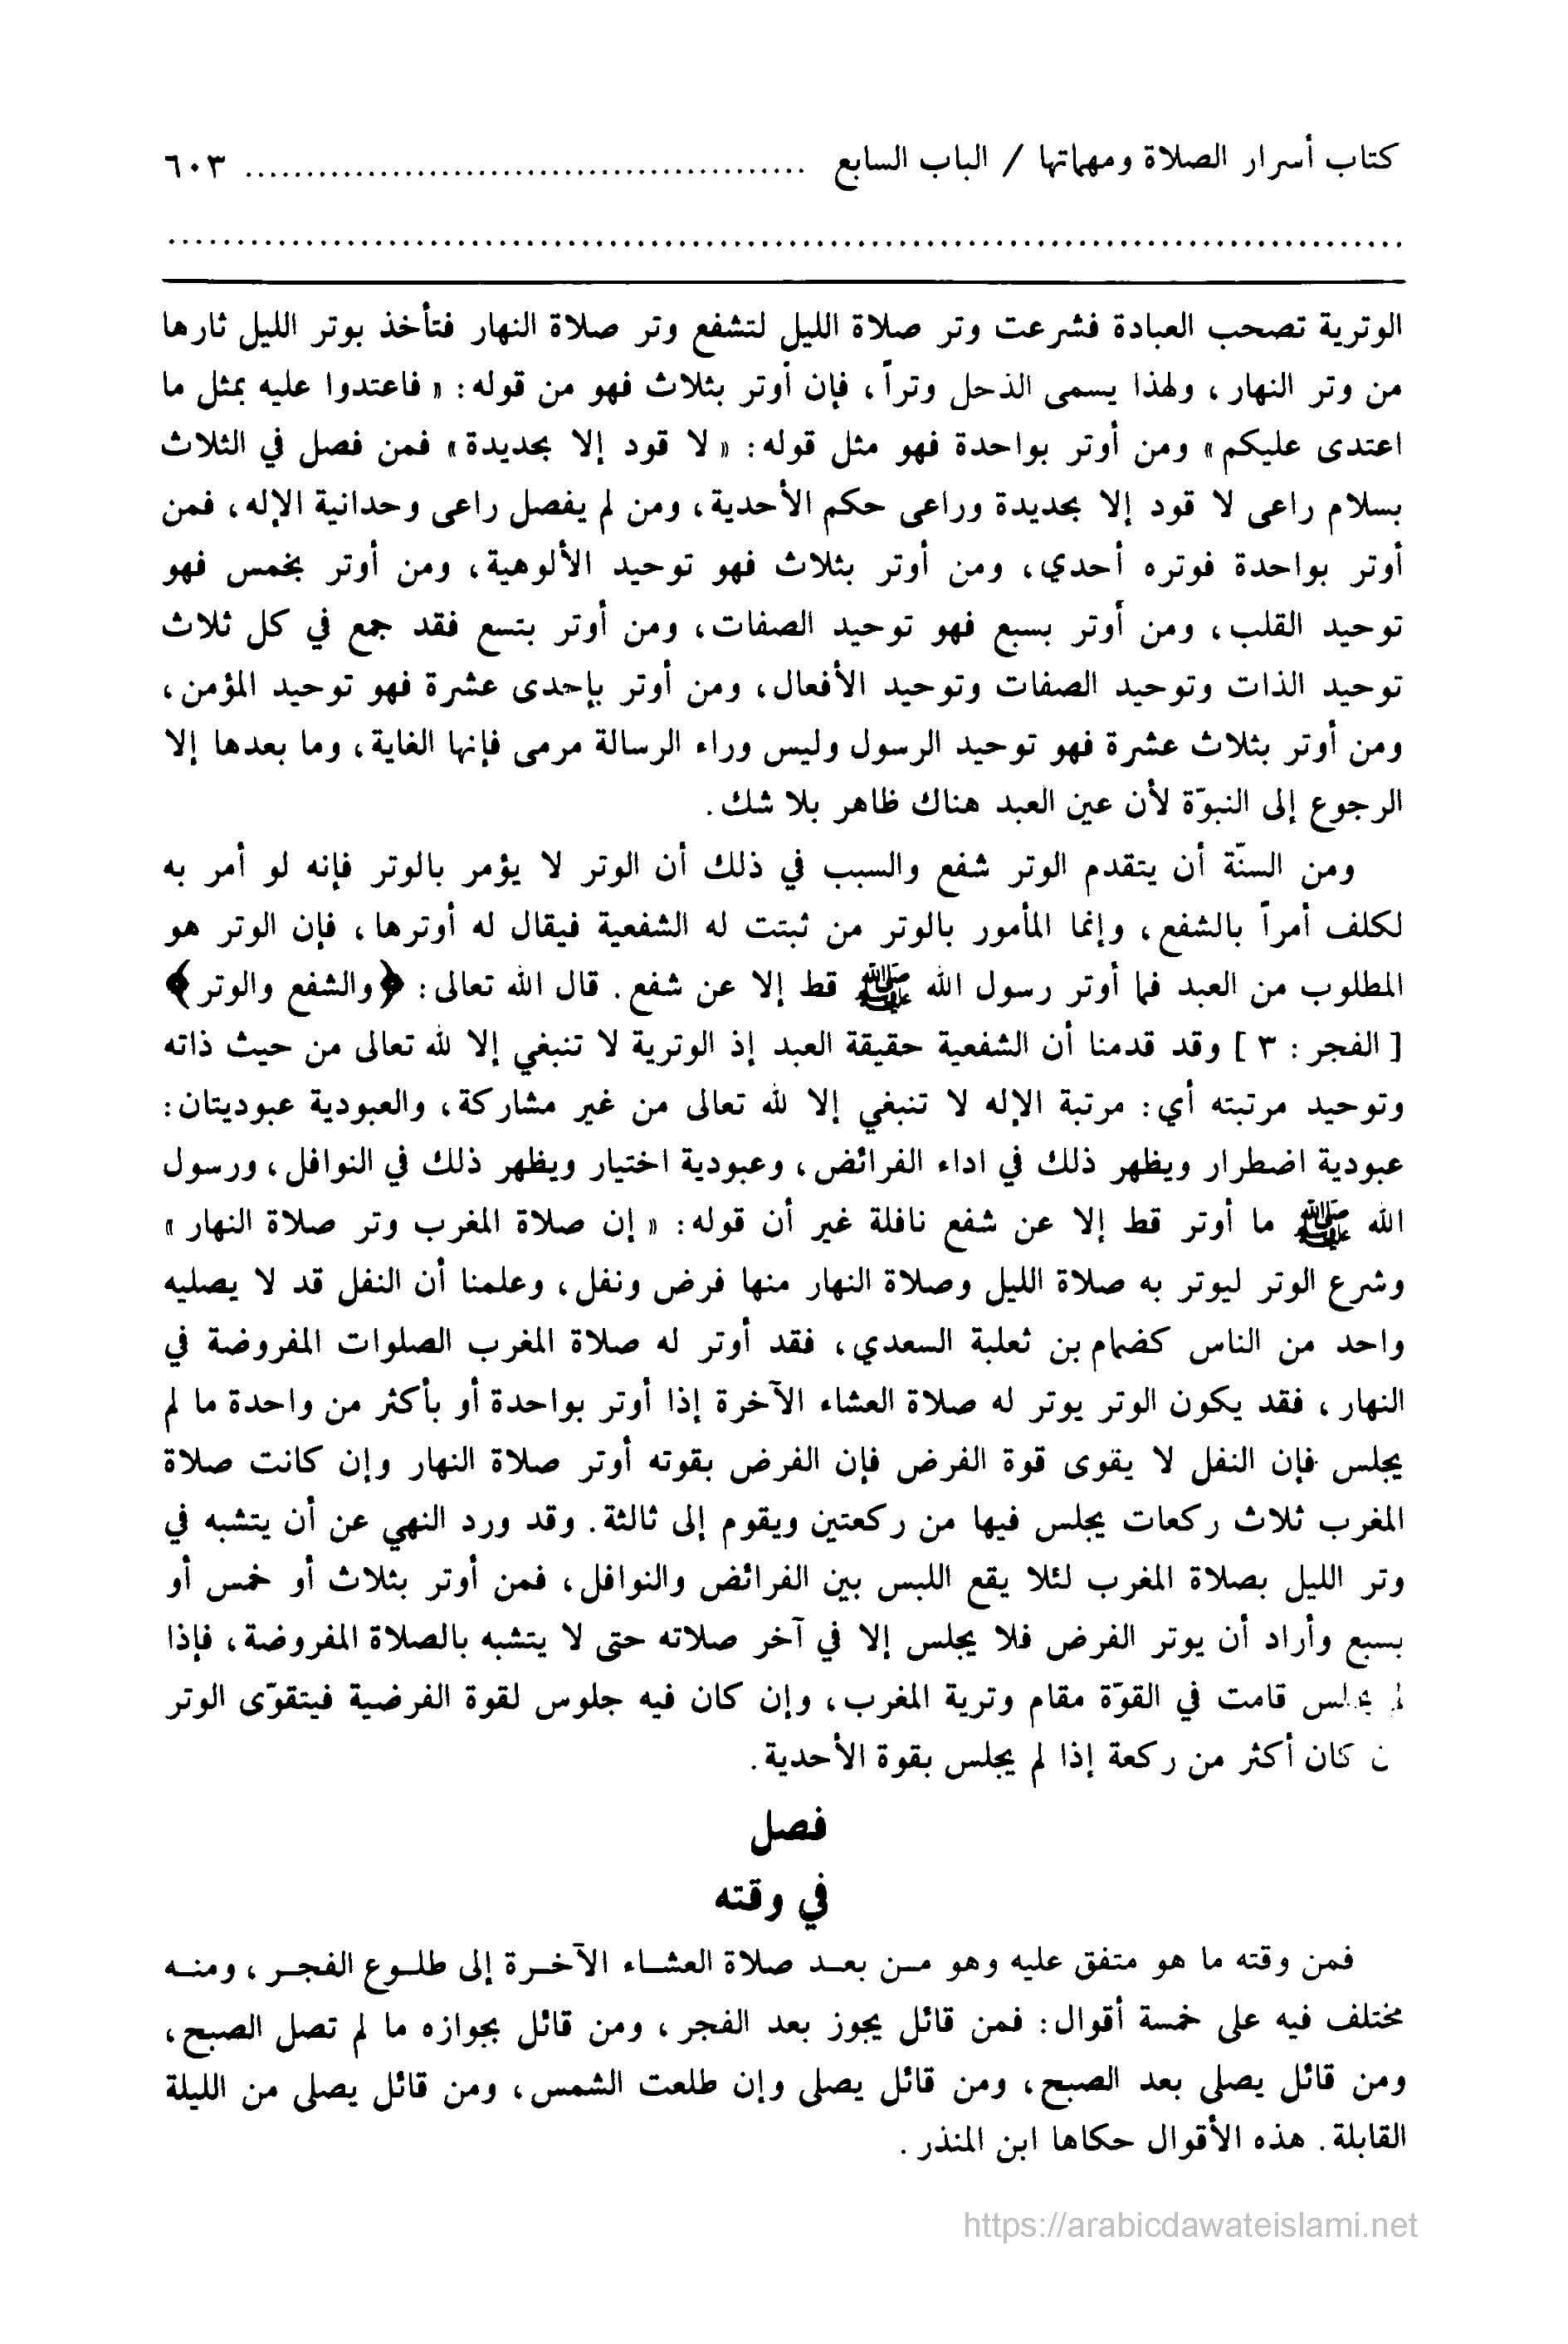 كتاب أسرار الصلاة ومهماتها / الباب السابع .............................................. ٦٠٣
..........................................................................................
الوترية تصحب العبادة فشرعت وتر صلاة الليل لتشفع وتر صلاة النهار فتأخذ بوتر الليل ثارها
من وتر النهار، ولهذا يسمى الذحل وتراً، فإن أوتر بثلاث فهو من قوله: « فاعتدوا عليه بمثل ما
اعتدى عليكم» ومن أوتر بواحدة فهو مثل قوله: « لا قود إلا بحديدة» فمن فصل في الثلاث
بسلام راعى لا قود إلا بحديدة وراعى حكم الأحدية، ومن لم يفصل راعى وحدانية الإله، فمن
أوتر بواحدة فوتره أحدي، ومن أوتر بثلاث فهو توحيد الألوهية، ومن أوتر بخمس فهو
توحيد القلب، ومن أوتر بسبع فهو توحيد الصفات، ومن أوتر بتسع فقد جمع في كل ثلاث
توحيد الذات وتوحيد الصفات وتوحيد الأفعال، ومن أوتر بإحدى عشرة فهو توحيد المؤمن،
ومن أوتر بثلاث عشرة فهو توحيد الرسول وليس وراء الرسالة مرمى فإنها الغاية، وما بعدها إلا
الرجوع إلى النبوّة لأن عين العبد هناك ظاهر بلا شك.
ومن السنّة أن يتقدم الوتر شفع والسبب في ذلك أن الوتر لا يؤمر بالوتر فإنه لو أمر به
لكلف أمراً بالشفع، وإنما المأمور بالوتر من ثبتت له الشفعية فيقال له أوترها، فإن الوتر هو
المطلوب من العبد فما أوتر رسول الله ﷺ قط إلا عن شفع. قال الله تعالى: ﴿والشفع والوتر﴾
[ الفجر: ٣ ] وقد قدمنا أن الشفعية حقيقة العبد إذ الوترية لا تنبغي إلا لله تعالى من حيث ذاته
وتوحيد مرتبته أي: مرتبة الإله لا تنبغي إلا لله تعالى من غير مشاركة، والعبودية عبوديتان:
عبودية اضطرار ويظهر ذلك في اداء الفرائض، وعبودية اختيار ويظهر ذلك في النوافل، ورسول
الله ﷺ ما أوتر قط إلا عن شفع نافلة غير أن قوله: « إن صلاة المغرب وتر صلاة النهار »
وشرع الوتر ليوتر به صلاة الليل وصلاة النهار منها فرض ونفل، وعلمنا أن النفل قد لا يصليه
واحد من الناس كضمام بن ثعلبة السعدي، فقد أوتر له صلاة المغرب الصلوات المفروضة في
النهار، فقد يكون الوتر يوتر له صلاة العشاء الآخرة إذا أوتر بواحدة أو بأكثر من واحدة ما لم
يجلس فإن النفل لا يقوى قوة الفرض فإن الفرض بقوته أوتر صلاة النهار وإن كانت صلاة
المغرب ثلاث ركعات يجلس فيها من ركعتين ويقوم إلى ثالثة. وقد ورد النهي عن أن يتشبه في
وتر الليل بصلاة المغرب لئلا يقع اللبس بين الفرائض والنوافل، فمن أوتر بثلاث أو خمس أو
بسبع وأراد أن يوتر الفرض فلا يجلس إلا في آخر صلاته حتى لا يتشبه بالصلاة المفروضة، فإذا
لم يجلس قامت في القوّة مقام وترية المغرب، وإن كان فيه جلوس لقوة الفرضية فيتقوّى الوتر
كان أكثر من ركعة إذا لم يجلس بقوة الأحدية.
فصل
في وقته
فمن وقته ما هو متفق عليه وهو من بعد صلاة العشاء الآخرة إلى طلوع الفجر، ومنه
مختلف فيه على خمسة أقوال: فمن قائل يجوز بعد الفجر، ومن قائل بجوازه ما لم تصل الصبح،
ومن قائل يصلى بعد الصبح، ومن قائل يصلى وإن طلعت الشمس، ومن قائل يصلى من الليلة
القابلة. هذه الأقوال حكاها ابن المنذر.
https://arabicdawateislami.net